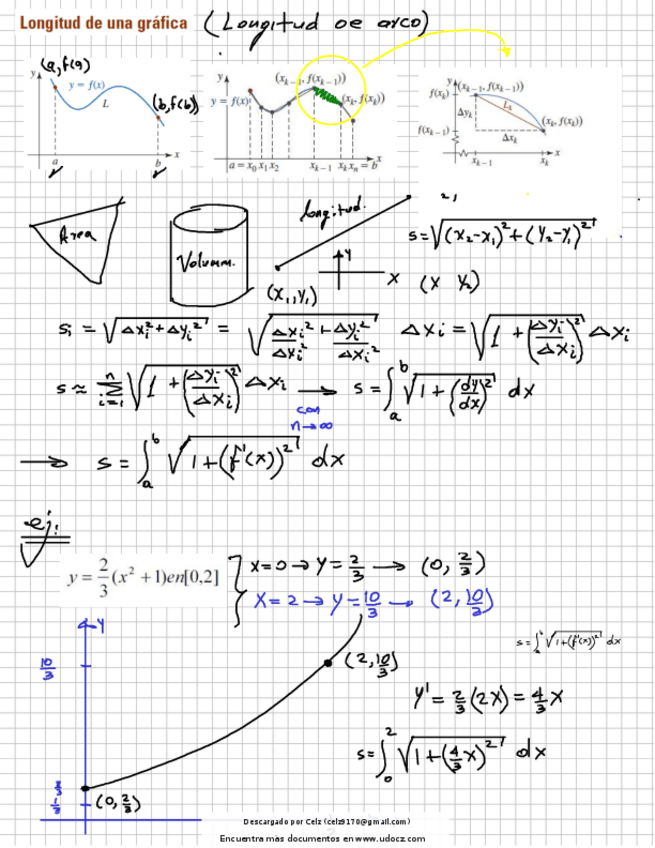 Longitud de una gráfica (Longitud de arco)
(a, f(a)) y y = f(x) L (b, f(b)) a b x
y y = f(x) (xₖ₋₁, f(xₖ₋₁)) (xₖ, f(xₖ)) a = x₀ x₁ x₂ xₖ₋₁ xₖ xₙ = b x
y (xₖ₋₁, f(xₖ₋₁)) f(xₖ) Lₖ Δyₖ (xₖ, f(xₖ)) f(xₖ₋₁) Δxₖ xₖ₋₁ xₖ x
Area
Volumm.
longitud.
(x₁, y₁)
y
x
s=√((x₂-x₁)²+(y₂-y₁)²)
(x y₂)
sᵢ = √(Δxᵢ²+Δyᵢ²) = √(Δxᵢ²/Δxᵢ² + Δyᵢ²/Δxᵢ²) Δxᵢ = √(1+(Δyᵢ/Δxᵢ)²) Δxᵢ
s ≈ Σᵢ₌₁ⁿ √(1+(Δyᵢ/Δxᵢ)²) Δxᵢ → s = ∫ₐᵇ √(1+(dy/dx)²) dx
con
n→∞
→ s = ∫ₐᵇ √(1+(f'(x))²) dx
ej:
y = 2/3 (x² + 1) en [0,2] { x=0 → y = 2/3 → (0, 2/3)
x=2 → y = 10/3 → (2, 10/3)
y
10/3
(2, 10/3)
s = ∫ₐᵇ √(1+(f'(x))²) dx
y' = 2/3 (2x) = 4/3 x
s = ∫₀² √(1+(4/3 x)²) dx
1/3
(0, 2/3)
Descargado por Celz (celz9170@gmail.com)
Encuentra más documentos en www.udocz.com